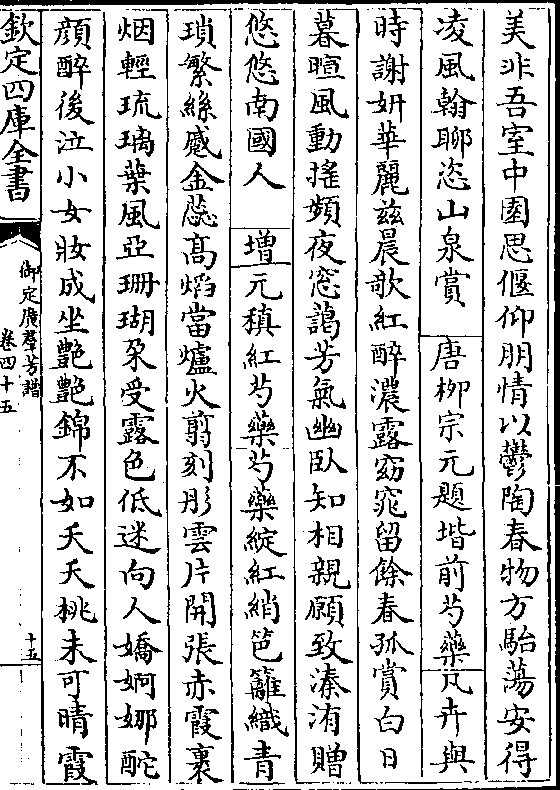 美非吾室中園思偃仰朋情以鬱陶春物方駘蕩安得
凌風翰聊恣山泉賞　唐柳宗元題堦前芍藥凡卉與
時謝妍華麗兹晨欹紅醉濃露窈窕留餘春孤賞白日
暮暄風動搖頻夜窓藹芳氣幽卧知相親願致溱洧贈
悠悠南國人　増元稹紅芍藥芍藥綻紅綃笆籬織青
瑣繁絲蹙金蕊高熖當爐火翦刻彤雲片開張赤霞裹
烟輕琉璃葉風亞珊瑚朶受露色低迷向人嬌婀娜酡
顔醉後泣小女妝成坐艷艷錦不如夭夭桃未可晴霞
欽定四庫全書
御定廣羣芳譜
卷四十五
十五